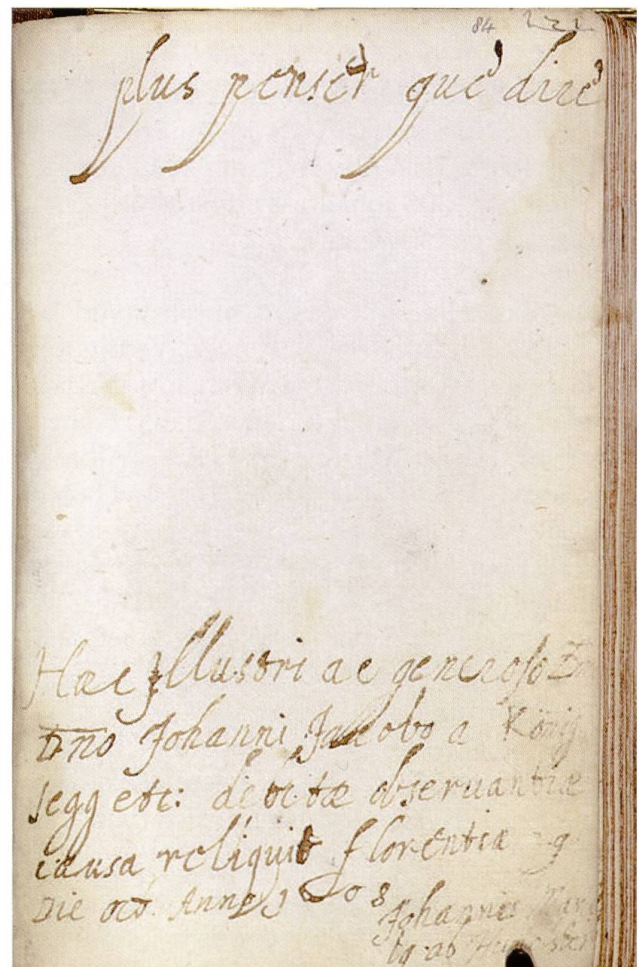 84 222
plus penser que dire
Hæc Illustri ac generoso
Dno Johanni Jacobo a König
segg etc: debitæ obseruantiæ
causa reliquit florentiæ 29
Die oct. Anno 1608
Johannes
ab